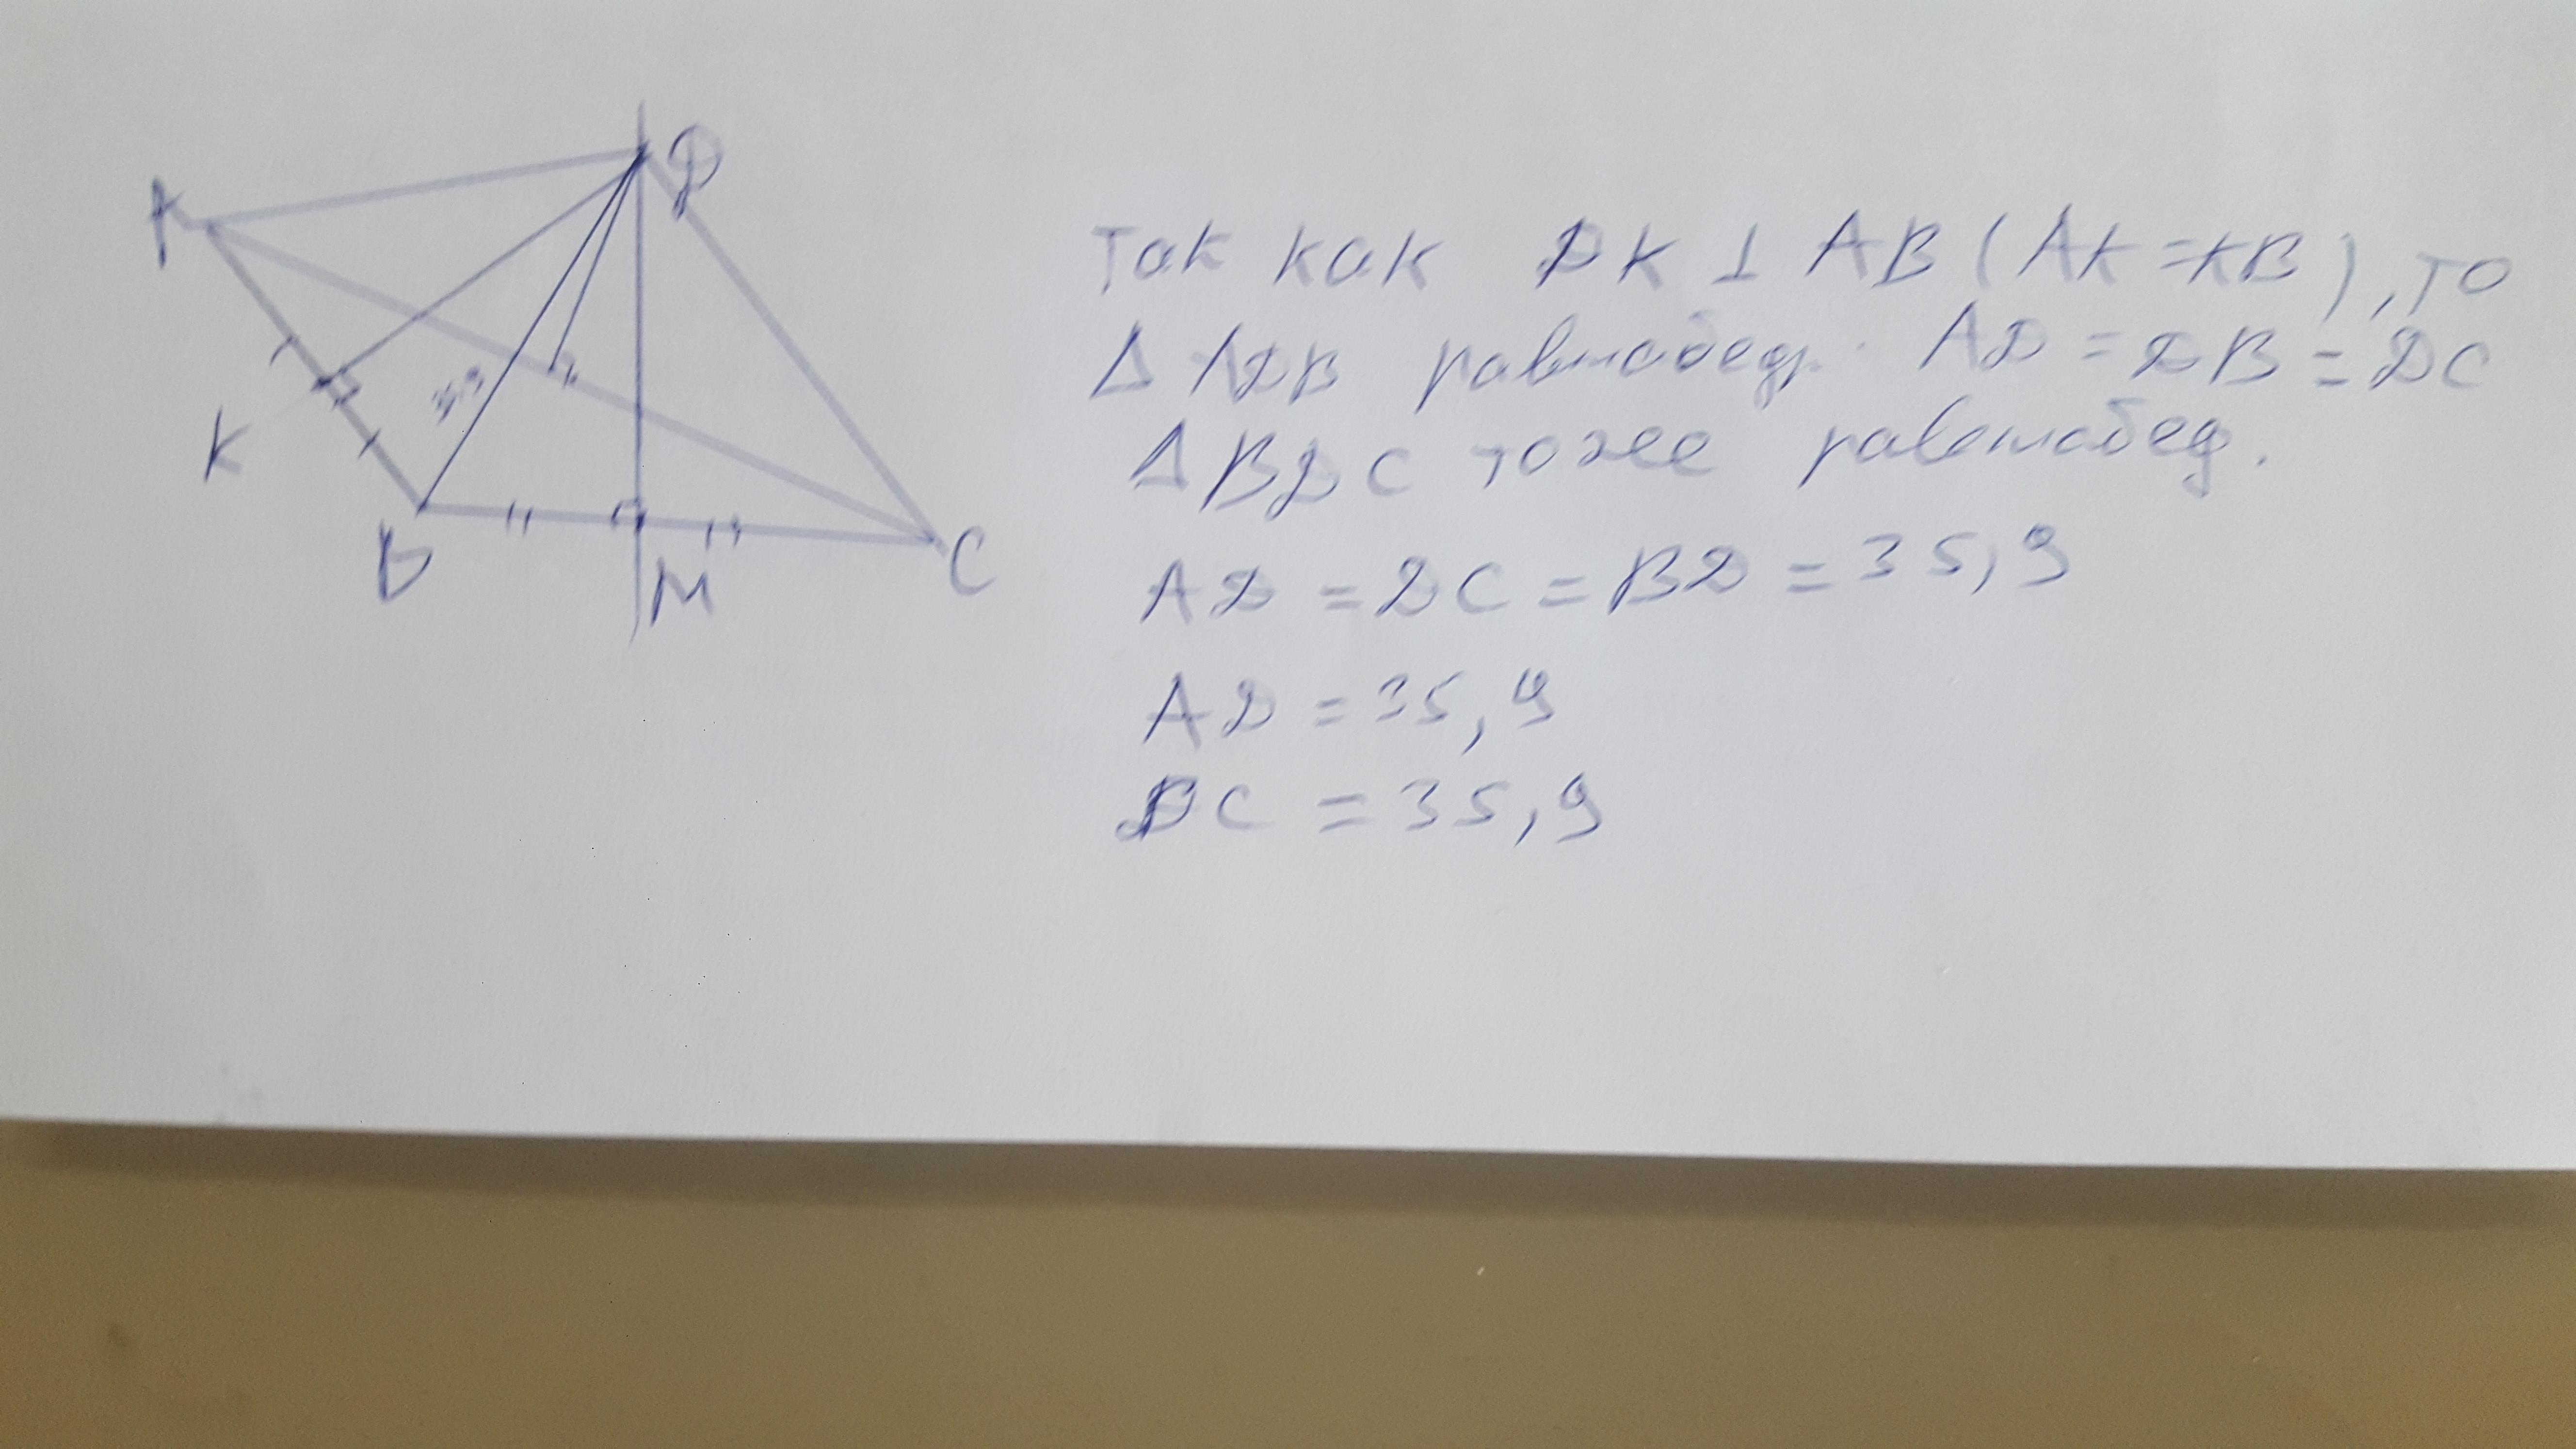 A
D
K
35,9
B
M
C
Так как DK ⊥ AB (AK = KB), то
Δ ADB равнобед. AD = DB = DC
Δ BDC тоже равнобед.
AD = DC = BD = 35,9
AD = 35,9
DC = 35,9